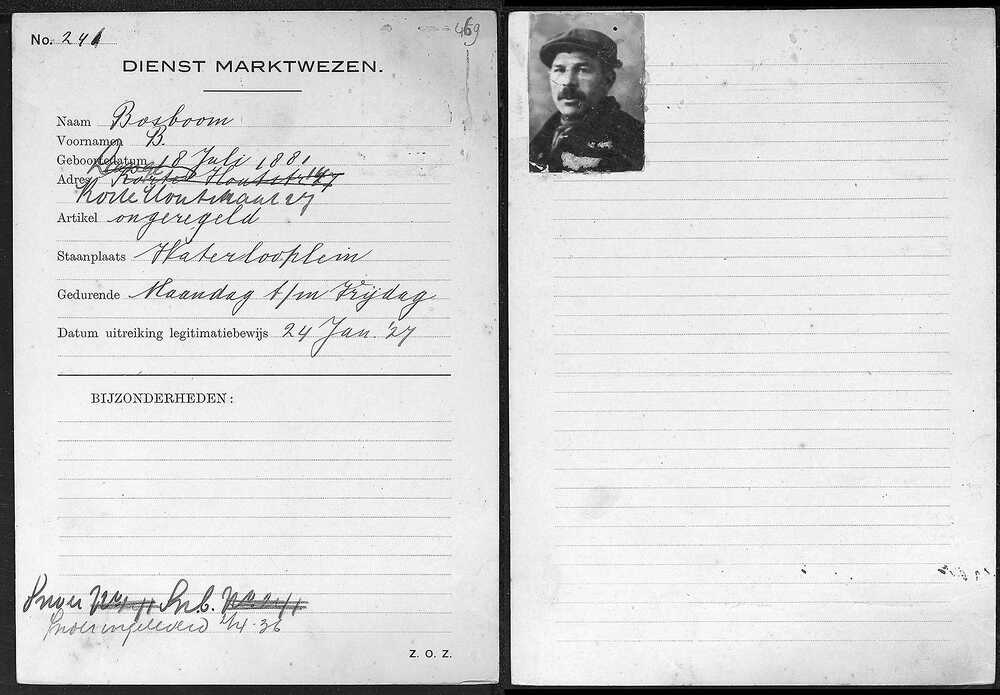 No. 241
469
DIENST MARKTWEZEN.
Naam Bosboom
Voornamen B.
Geboortedatum 18 Juli 1881
Adres Korte Houtstr. 127
Korte Houtstraat 27
Artikel ongeregeld
Staanplaats Waterlooplein
Gedurende Maandag t/m Vrijdag
Datum uitreiking legitimatiebewijs 24 Jan. '27
BIJZONDERHEDEN:
Z. O. Z.